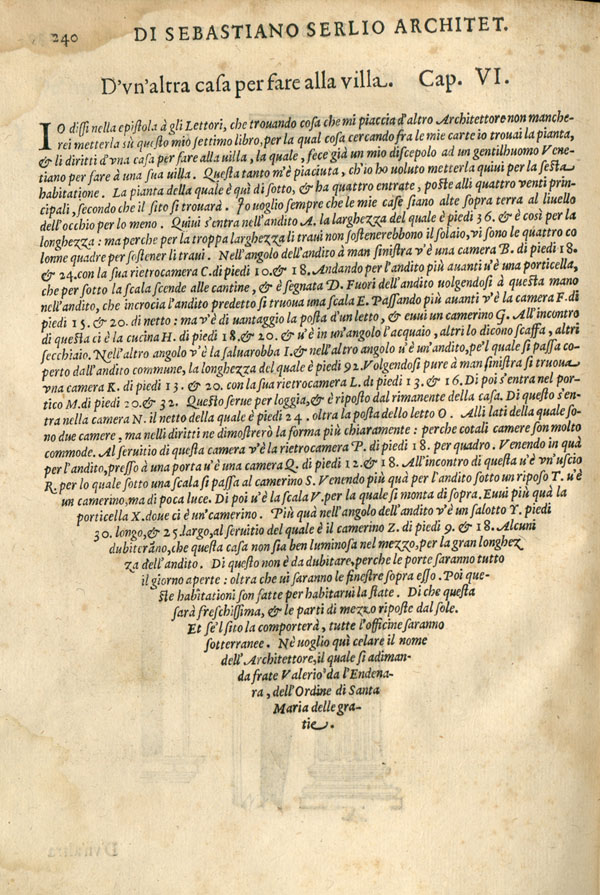 240
DI SEBASTIANO SERLIO ARCHITET.
D'vn'altra casa per fare alla villa. Cap. VI.
IO dissi nella epistola à gli Lettori, che trouando cosa che mi piaccia d'altro Architettore non manche-
rei metterla sù questo mio settimo libro, per la qual cosa cercando fra le mie carte io trouai la pianta,
& li diritti d'vna casa per fare alla uilla, la quale, fece già un mio discepolo ad un gentilhuomo Vene-
tiano per fare à una sua uilla. Questa tanto m'è piaciuta, ch'io ho uoluto metterla quiui per la sesta
habitatione. La pianta della quale è quì di sotto, & ha quattro entrate, poste alli quattro venti prin-
cipali, secondo che il sito si trouarà. Io uoglio sempre che le mie case siano alte sopra terra al liuello
dell'occhio per lo meno. Quiui s'entra nell'andito A. la larghezza del quale è piedi 36. & è così per la
longhezza: ma perche per la troppa larghezza li traui non sostenerebbono il solaio, vi sono le quattro co
lonne quadre per sostener li traui. Nell'angolo dell'andito à man sinistra v'è una camera B. di piedi 18.
& 24. con la sua rietrocamera C. di piedi 10. & 18. Andando per l'andito più auanti u'è una porticella,
che per sotto la scala scende alle cantine, & è segnata D. Fuori dell'andito uolgendosi à questa mano
nell'andito, che incrocia l'andito predetto si truoua una scala E. Passando più auanti v'è la camera F. di
piedi 15. & 20. di netto: ma v'è di uantaggio la posta d'un letto, & euui un camerino G. All'incontro
di questa ci è la cucina H. di piedi 18. & 20. & u'è in un'angolo l'acquaio, altri lo dicono scaffa, altri
secchiaio. Nell'altro angolo v'è la saluarobba I. & nell'altro angolo u'è un'andito, pe'l quale si passa co-
perto dall'andito commune, la longhezza del quale è piedi 92. Volgendosi pure à man sinistra si truoua
vna camera K. di piedi 13. & 20. con la sua rietrocamera L. di piedi 13. & 16. Di poi s'entra nel por-
tico M. di piedi 20. & 32. Questo serue per loggia, & è riposto dal rimanente della casa. Di questo s'en-
tra nella camera N. il netto della quale è piedi 24. oltra la posta dello letto O. Alli lati della quale so-
no due camere, ma nelli diritti ne dimostrerò la forma più chiaramente: perche cotali camere son molto
commode. Al seruitio di questa camera v'è la rietrocamera P. di piedi 18. per quadro. Venendo in quà
per l'andito, presso à una porta u'è una camera Q. di piedi 12. & 18. All'incontro di questa u'è vn'uscio
R. per lo quale sotto una scala si passa al camerino S. Venendo più quà per l'andito sotto un riposo T. u'è
un camerino, ma di poca luce. Di poi u'è la scala V. per la quale si monta di sopra. Euui più quà la
porticella X. doue ci è un camerino. Più quà nell'angolo dell'andito v'è un salotto Y. piedi
30. longo, & 25. largo, al seruitio del quale è il camerino Z. di piedi 9. & 18. Alcuni
dubiterano, che questa casa non sia ben luminosa nel mezzo, per la gran longhez
za dell'andito. Di questo non è da dubitare, perche le porte saranno tutto
il giorno aperte: oltra che ui saranno le finestre sopra esso. Poi que-
ste habitationi son fatte per habitarui la state. Di che questa
sarà freschissima, & le parti di mezzo riposte dal sole.
Et se'l sito la comporterà, tutte l'officine saranno
sotterranee. Nè uoglio quì celare il nome
dell'Architettore, il quale si adiman-
da frate Valerio da l'Endena-
ra, dell'Ordine di Santa
Maria delle gra-
tie.
D'vn'altra